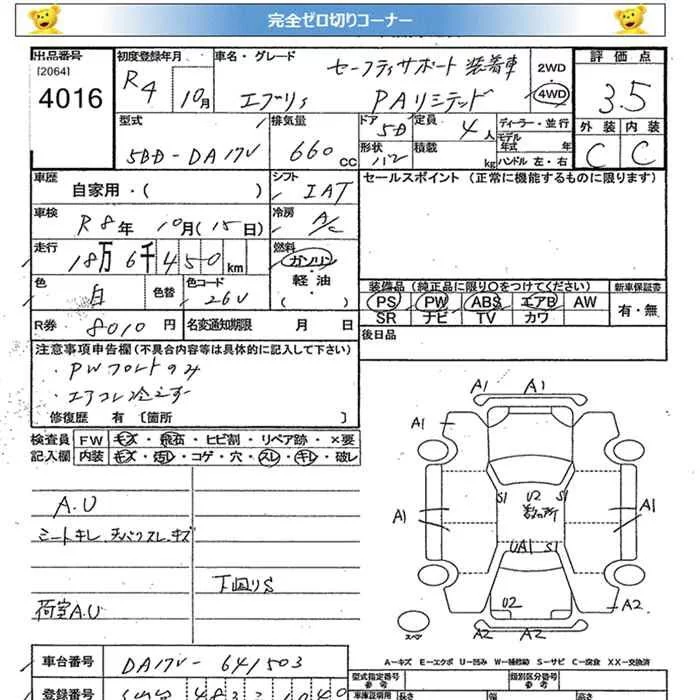 完全ゼロ切りコーナー
出品番号 [2064] 4016
初度登録年月 R4 10月
車名・グレード セーフティサポート装着車
エブリィ PAリミテッド
2WD 4WD
評価点 3.5
外装 内装
C C
型式 5BD-DA17V
排気量 660 cc
ドア 5D 定員 4人
形状 バン 積載 kg
ディーラー・並行
モデル年式 年
ハンドル 左・右
車歴 自家用・( )
シフト IAT
セールスポイント (正常に機能するものに限ります)
車検 R8年 10月(15日)
冷房 A/C
走行 18万6千450km
燃料 ガソリン 軽油 ( )
色 白 色替 色コード 26U
装備品 (純正品に限り○をつけてください) 新車保証書
PS PW ABS エアB AW 有・無
SR ナビ TV カワ
R券 8010円 名変通知期限 月 日
後日品
注意事項申告欄(不具合内容等は具体的に記入して下さい)
・PWフロントのみ
・エアコン冷えず
修復歴 有 〔箇所 〕
検査員 FW キズ・飛石・ヒビ割・リペア跡・×要
記入欄 内装 キズ・汚レ・コゲ・穴・スレ・キレ・破レ
A1 A1
A1
A.U
S1 U2 S1
数ヶ所
A1 A1
シートキレ
UA1 S1
下回りS
荷室A.U
U2
A2
スペア A2 A2
A-キズ E-エクボ U-凹み W-補修跡 S-サビ C-腐食 XX-交換済
車台番号 DA17V-641503
型式指定番号 参考 類別区分番号 参考
登録番号
車庫証明用 参考 長さ 幅 高さ